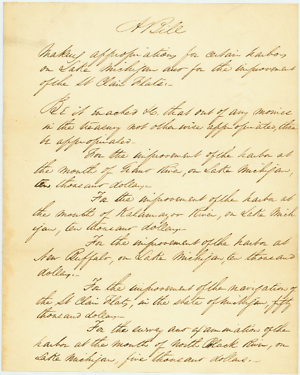 A Bill
Making appropriations for certain harbors
on Lake Michigan and for the improvement
of the St Clair Flats.
Be it enacted &c that out of any monies
in the treasury not otherwise appropriated, there
be appropriated
For the improvement of the harbor at
the mouth of Grand River, on Lake Michigan,
ten thousand dollars.
For the improvement of the harbor at
the mouth of Kalamazoo River, on Lake Mich
igan, ten thousand dollars.
For the improvement of the harbor at
New Buffalo, on Lake Michigan, ten thousand
dollars.
For the improvement of the navigation of
the St Clair Flats, in the state of Michigan, fifty
thousand dollars.
For the survey and examination of the
harbor at the mouth of North Black River, on
Lake Michigan, five thousand dollars.